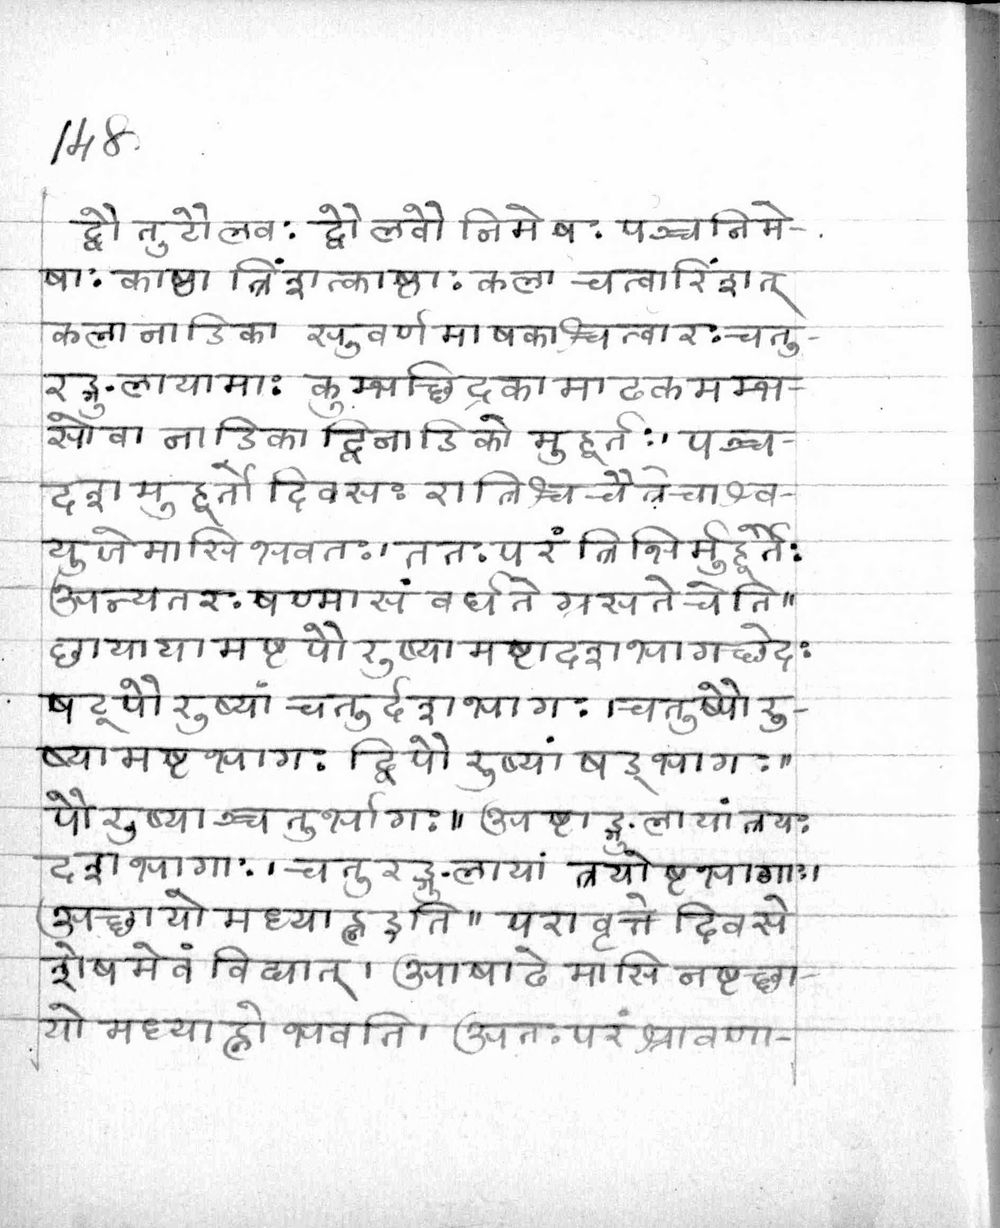 148
द्वौ तुटौ लवः द्वौ लवौ निमेषः पञ्चनिमे-
षाः काष्ठा त्रिंशत्काष्ठाः कला चत्वारिंशत्
कला नाडिका सुवर्णमाषकाश्चत्वारः चतु-
रङ्गुलायामाः कुम्भच्छिद्रकामाढकमम्भ-
सो वा नाडिका द्विनाडिको मुहूर्तः। पञ्च-
दशमुहूर्तो दिवसः रात्रिश्च चैत्रे चाश्व-
युजे मासि भवतः। ततः परं त्रिभिर्मुहूर्तैः
अन्यतरः षण्मासं वर्धते ग्रसते चेति॥
छायायामष्टपौरुष्यामष्टादशभागच्छेदः
षट्पौरुष्यां चतुर्दशभागः। चतुष्पौरु-
ष्यामष्टभागः द्विपौरुष्यां षड्भागः॥
पौरुष्याञ्चतुर्भागः॥ अष्टाङ्गुलायां त्रयः
दशभागाः। चतुरङ्गुलायां त्रयोष्टभागाः।
अच्छायो मध्याह्न इति॥ परावृत्ते दिवसे
शेषमेवं विद्यात्। आषाढे मासि नष्टछा-
यो मध्याह्नो भवति। अतः परं श्रावणा-